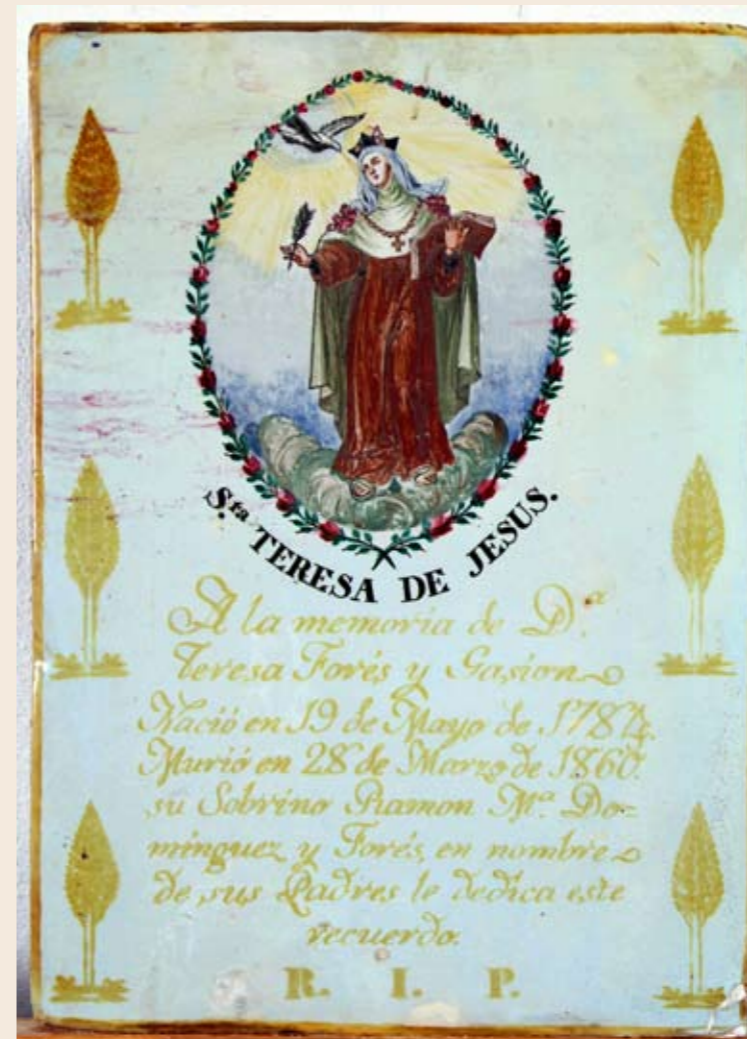 S.ta TERESA DE JESUS.
A la memoria de D.a
Teresa Forés y Gasion
Nació en 19 de Mayo de 1784.
Murió en 28 de Marzo de 1860.
su Sobrino Ramon M.a Do=
minguez y Forés, en nombre
de sus Padres le dedica este
recuerdo.
R. I. P.